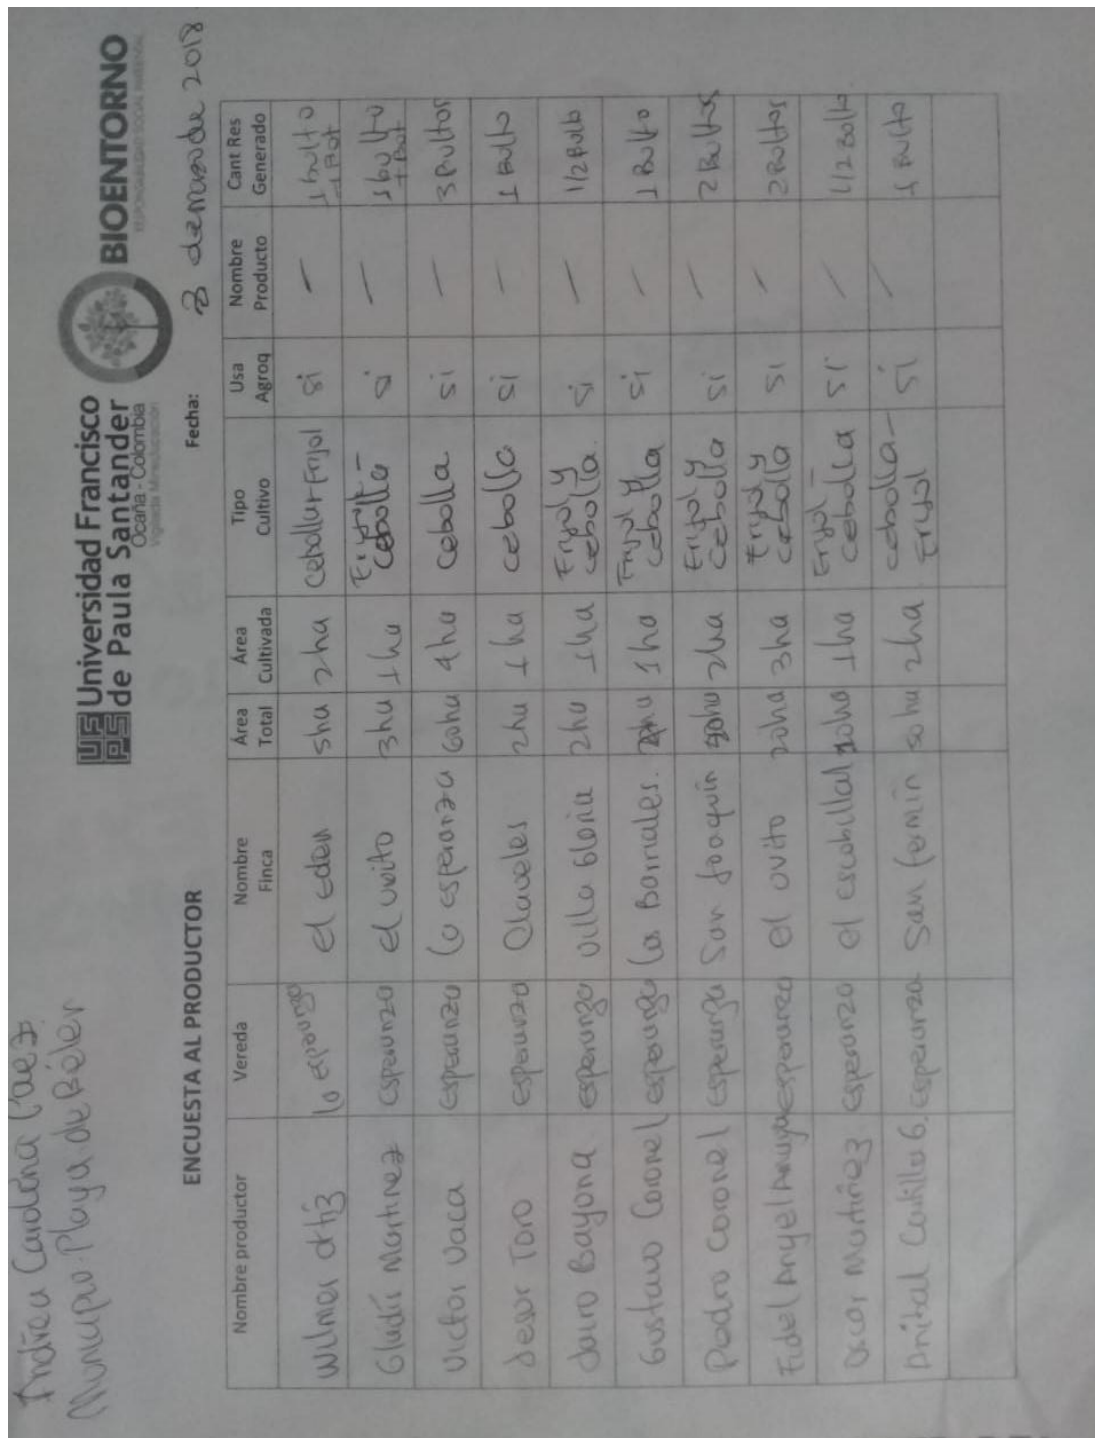 Andrea Carolina Paez
Municipio Playa de Belen
UFPS Universidad Francisco
de Paula Santander
Ocaña - Colombia
Vigilada Mineducación
BIOENTORNO
ENCUESTA AL PRODUCTOR Fecha: 3 de marzo de 2018
Nombre productor Vereda Nombre Finca Área Total Área Cultivada Tipo Cultivo Usa Agroq Nombre Producto Cant Res Generado
Wilmer Ortiz la esperanza el eden 5ha 2ha cebolla + Frijol si — 1 bulto + Bot
Gladis Martinez esperanza el uvito 3ha 1ha Frijol - cebolla si — 1 bulto + Bot
Victor Vaca esperanza la esperanza 60ha 4ha cebolla si — 3 Bultos
Jesus Toro esperanza Claveles 2ha 1ha cebolla si — 1 Bulto
Jairo Bayona esperanza villa Gloria 2ha 1ha Frijol y cebolla. si — 1/2 Bulto
Gustavo Coronel esperanza los Barriales. 1ha Frijol y cebolla si — 1 Bulto
Pedro Coronel esperanza San Joaquin 2ha Frijol y cebolla si — 2 Bultos
Fidel Angel esperanza el uvito 20ha 3ha Frijol y cebolla si — 2 Bultos
Oscar Martinez esperanza el escobillal 1ha Frijol - cebolla si — 1/2 Bulto
Anibal Castillo G. esperanza San fermin 50ha 2ha cebolla - Frijol si — 1 Bulto